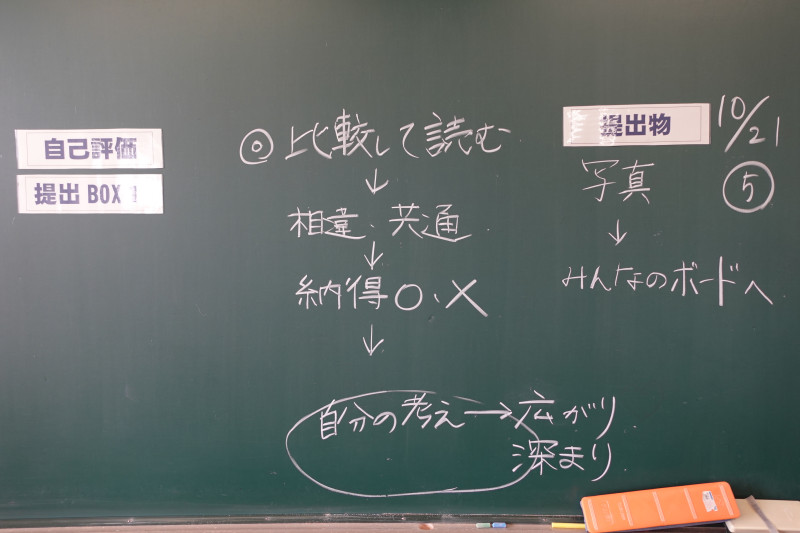 自己評価
提出BOX
◎比較して読む
↓
相違、共通
↓
納得○、×
↓
自分の考え→広がり
深まり
提出物
10/21
写真 ⑤
↓
みんなのボードへ